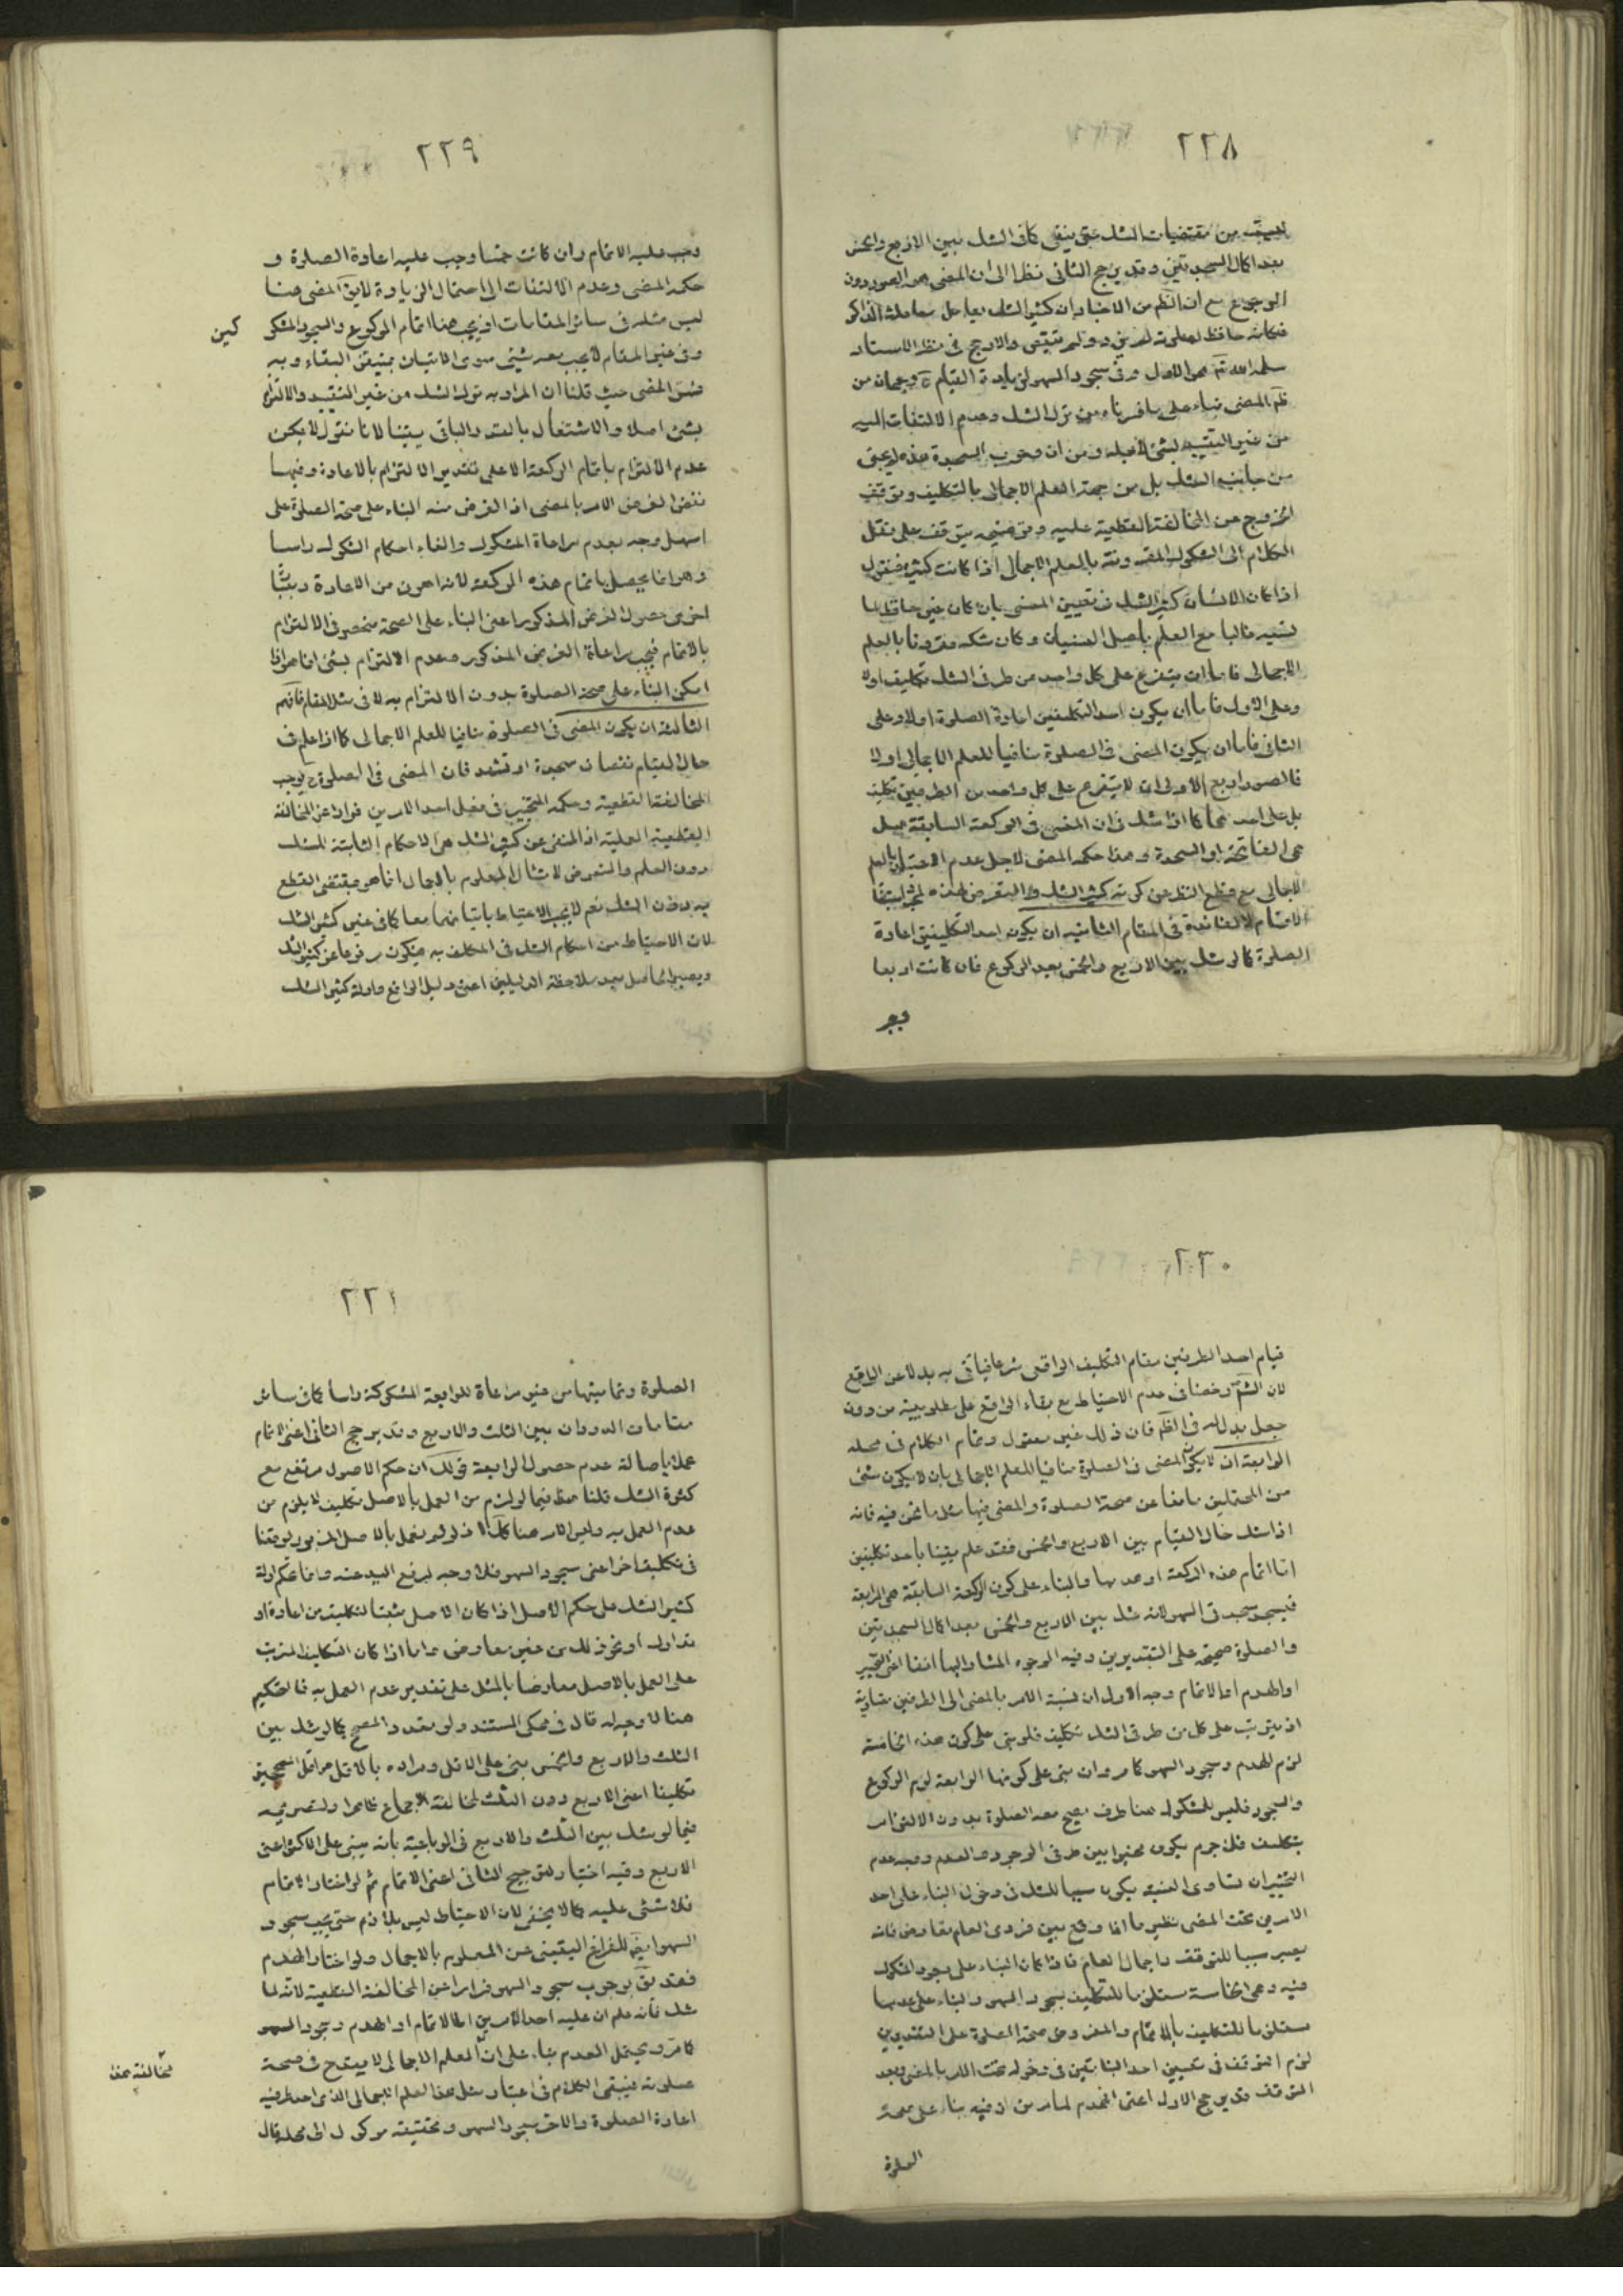 ٢٢٨
من مقتضيات الشك حتى ينفى كما فى الشك بين الاربع والخمس
بعد اكمال السجدتين وقد يرجح الثانى نظرا الى ان المضى هو الصدور دون
الرجوع مع ان الظم من الاخبار ان كثير الشك يعامل معاملة الذاكر
فكانه حافظ لصلوته لم يزد ولم ينقص والارجح فى نظر الاستاد
سلمه الله تم هو الاول وفى سجود السهو لزيادة القيام ح وجهان من
ظم المضى بناء على ما قررناه من ترك الشك وعدم الالتفات اليه
من غير التقييد بشئ لاجله ومن ان وجوب السجدة هذه لم يجئ
من جانب الشك بل من جهة العلم الاجمالى بالتكليف وتوقف
الخروج عن المخالفة القطعية عليه وتوضيحه يتوقف على نقل
الكلام الى الشكوك المقرونة بالعلم الاجمالى اذا كانت كثيرة فنقول
اذا كان الانسان كثير الشك فى تعيين المنسى بان كان غير حافظ لما
نسيه غالبا مع العلم باصل النسيان وكان شكه مقرونا بالعلم
الاجمالى فاما ان يتفرع على كل واحد من طرفى الشك تكليف او لا
وعلى الاول فاما ان يكون احد التكليفين اعادة الصلوة او لا وعلى
الثانى فاما ان يكون المضى فى الصلوة منافيا للعلم الاجمالى او لا
فالصور اربع الاولى ان لا يتفرع على كل واحد من الطرفين تكليف
بل على احدهما كما اذا شك فى ان المنسى فى الركعة السابقة هل
هى الفاتحة او السجدة وهذا حكمه المضى لاجل عدم الاعتبار بالعلم
الاجمالى مع قطع النظر عن كونه كثير الشك والتعرض لهذه لمجرد استيفاء
الاقسام لا لفائدة فى المقام الثانيه ان يكون احد التكليفين اعادة
الصلوة كما لو شك بين الاربع والخمس بعد الركوع فان كانت اربعا
وجب
٢٢٩
وجب عليه الاتمام وان كانت خمسا وجب عليه اعادة الصلوة و
حكمه المضى وعدم الالتفات الى احتمال الزيادة لا يق المضى هنا
ليس مثله فى سائر المقامات اذ يجب هنا اتمام الركوع والسجود المشكوكين
وفى غير المقام لا يجب معه شئ سوى الاتيان بمتيقن البقاء وبه
فسر المضى حيث قلنا ان المراد به ترك الشك من غير التقييد والالتزام
بشئ اصلا والاشتغال بالقدر الباقى يقينا لانا نقول لا يمكن
عدم الالتزام باتمام الركعة الا على تقدير الالتزام بالاعادة وفيها
نقض الغرض الامر بالمضى اذ الغرض منه البناء على صحة الصلوة على
اسهل وجه بعدم مراعاة المشكوك والغاء احكام الشكوك راسا
وهو انما يحصل باتمام هذه الركعة لانه اهون من الاعادة وبعبارة
اخرى حصول الغرض المذكور اعنى البناء على الصحة منحصر فى الالتزام
بالاتمام فيجب مراعاة الغرض المذكور وعدم الالتزام بشئ انما هو اذا
امكن البناء على صحة الصلوة بدون الالتزام به لا فى مثل المقام فافهم
الثالثة ان يكون المضى فى الصلوة منافيا للعلم الاجمالى كما اذا علم فى
حال القيام نقصان سجدة او تشهد فان المضى فى الصلوة ح يوجب
المخالفة القطعية وحكمه التخيير فى فعل احد الامرين فرارا عن المخالفة
القطعية العملية اذ المنفى عن كثير الشك هى الاحكام الثابتة للشك
دون العلم والتعرض لامتثال المعلوم بالاجمال انما هو مقتضى القطع
به دون الشك نعم لا يجب الاحتياط باتيانهما معا كما فى غير كثير الشك
لان الاحتياط من احكام الشك فى المكلف به فيكون مرفوعا عن كثير الشك
ويصير الحاصل بعد ملاحظة الدليلين اعنى دليل الواقع وادلة كثير الشك
٢٣٠
قيام احد الطرفين مقام التكليف الواقعى شرعا فيأتى به بدلا عن الواقع
لان الشم رخصنا فى عدم الاحتياط مع بقاء الواقع على مطلوبيته من دون
جعل بدل له فى الظم فان ذلك غير معقول وتمام الكلام فى محله
الرابعة ان لا يكون المضى فى الصلوة منافيا للعلم الاجمالى بان لا يكون شئ
من المحتملين مانعا عن صحة الصلوة والمضى فيها مثل ما نحن فيه فانه
اذا شك حال القيام بين الاربع والخمس فقد علم يقينا باحد تكليفين
اما اتمام هذه الركعة او هدمها والبناء على كون الركعة السابقة هى الرابعة
فيسجد سجدتى السهو لانه شك بين الاربع والخمس بعد اكمال السجدتين
والصلوة صحيحة على التقديرين وفيه الوجوه المشار اليها انفا اعنى التخيير
او الهدم او الاتمام وجه الاول ان نسبة الامر بالمضى الى الطرفين متساوية
اذ يترتب على كل من طرفى الشك تكليف فلو بنى على كون هذه الخامسة
لزم الهدم وسجود السهو كما مر وان بنى على كونها الرابعة لزم الركوع
والسجود فليس للشكوك هنا طرف يصح معه الصلوة بدون الالتزام
بتكليف فلا جرم يكون مخيرا بين طرفى الوجود والعدم ووجه عدم
التخيير ان تساوى النسبة يكون سببا للشك فى دخول البناء على احد
الامرين تحت المضى نظير ما اذا وقع بين فردى العام تعارض فانه
يصير سببا للتوقف واجمال العام فاذا كان البناء على وجود المشكوك
فيه وهى الخامسة مستلزما للتكليف بسجود السهو والبناء على عدمها
مستلزما للتكليف بالاتمام والمفروض صحة الصلوة على التقديرين
لزم التوقف فى تعيين احد البنائين فى دخوله تحت الامر بالمضى وبعد
التوقف قد يرجح الاول اعنى الهدم لما مر من ان فيه بناء على صحة
الصلوة
٢٣١
الصلوة وتماميتها من غير مراعاة للرابعة المشكوكة راسا كما فى سائر
مقامات الدوران بين الثلث والاربع وقد يرجح الثانى اعنى الاتمام
عملا باصالة عدم حصول الرابعة قولك ان حكم الاصول مرتفع مع
كثرة الشك قلنا هذا فيما لو لزم من العمل بالاصل تكليف لا يلزم من
عدم العمل به وليس الامر هنا كك اذ لو لم نعمل بالاصل المزبور لوقعنا
فى تكليف اخر اعنى سجود السهو فلا وجه لرفع اليد عنه وانما تحكم ادلة
كثير الشك على حكم الاصل اذا كان الاصل مثبتا لتكليف من اعادة او
تدارك او نحو ذلك من غير معارض واما اذا كان التكليف المترتب
على العمل بالاصل معارضا بالمثل على تقدير عدم العمل به فالتحكيم
هنا لا وجه له قال فى محكى المستند ولو تعدد المصحح كما لو شك بين
الثلث والاربع والخمس بنى على الاقل ومراده بالاقل هو اقل الصحيحين
تكليفا اعنى الاربع دون الثلث لمخالفة الاجماع ظاهرا ولتصريحه
فيما لو شك بين الثلث والاربع فى الرباعية بانه يبنى على الاكثر اعنى
الاربع وفيه اختيار لترجيح الثانى اعنى الاتمام ثم لو اختار الاتمام
فلا شئ عليه كما لا يخفى لان الاحتياط ليس بلازم حتى يجب سجود
السهو ايضا للفراغ اليقينى عن المعلوم بالاجمال ولو اختار الهدم
فقد يق بوجوب سجود السهو فرارا عن المخالفة القطعية لانه لما
شك فانه علم ان عليه احد الامرين اما الاتمام او الهدم وسجود السهو
كما مر ويحتمل العدم بناء على ان العلم الاجمالى لا يقدح فى صحة
صلوته فيبقى الكلام فى اعتبار مثل هذا العلم الاجمالى الذى احد طرفيه مخالفة هذا
اعادة الصلوة والاخر سجود السهو وتحقيقه موكول الى محله قال